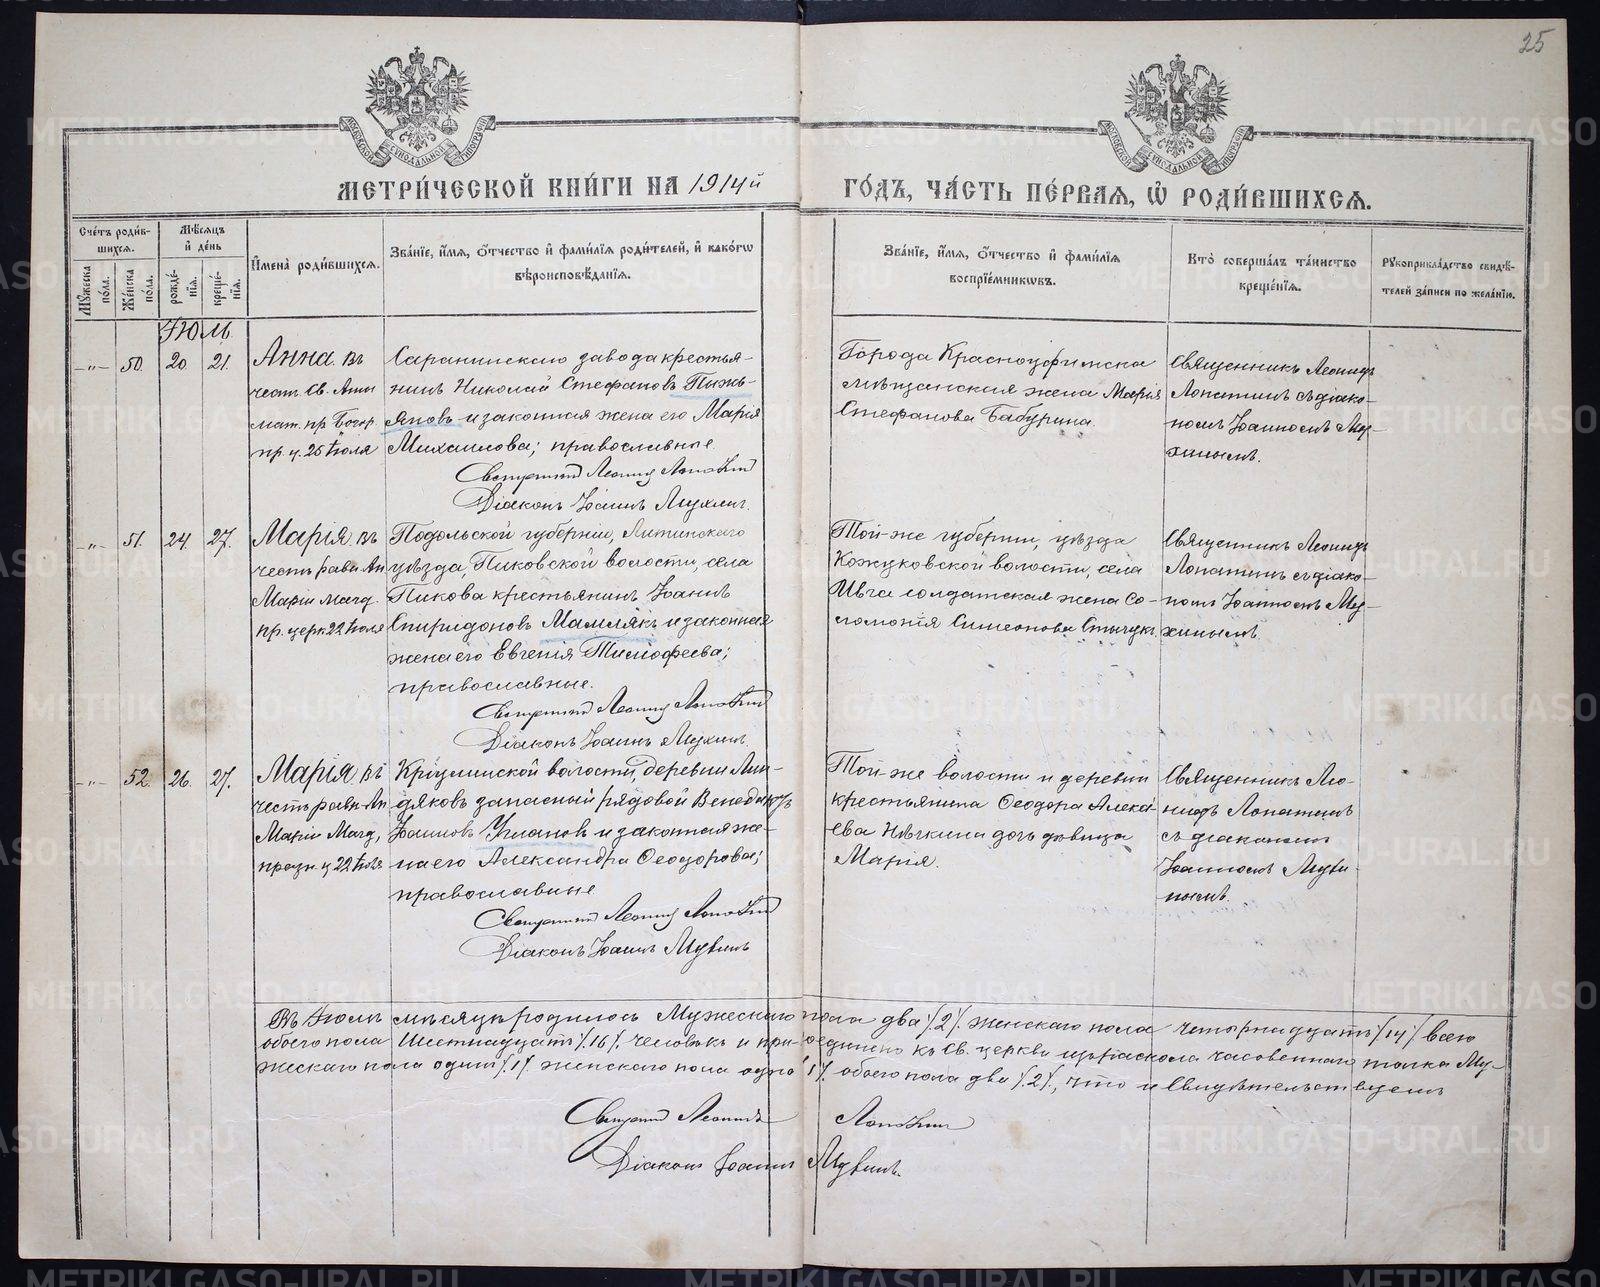 25
МЕТРИ́ЧЕСКОЙ КНИ́ГИ НА 1914й
ГО́ДЪ, ЧА́СТЬ ПЕ́РВАЯ, Ѡ҆ РОДИ́ВШИХСЯ.
Сче́тъ роди́в-
шихся.
Му́жеска по́ла.
Же́нска по́ла.
Мѣ́сяцъ
и҆ де́нь
рожде́-
нїя.
креще́-
нїя.
И҆мена̀ роди́вшихся.
Зва́нїе, и҆́мя, ѻ҆́тчество и҆ фами́лїя роди́телей, и҆ како́гѡ
вѣроисповѣ́данїя.
Зва́нїе, и҆́мя, ѻ҆́тчество и҆ фами́лїя
воспрїе́мникѡвъ.
Кто̀ соверша́лъ та́инство
креще́нїя.
Рꙋкоприкла́дство свидѣ́-
телей за́писи по жела́нїю.
Іюль
-„- 50. 20. 21.
Анна въ
честь Св. Анны
мат. пр. Богор.
пр. ч. 25 Іюля
Саранинскаго завода крестья-
нинъ Николай Стефановъ Пыжь-
яновъ и законная жена его Марія
Михаилова; православные.
Священникъ Леонидъ Лопатинъ
Діаконъ Іоаннъ Мухинъ.
Города Красноуфимска
мѣщанская жена Марія
Стефанова Бабурина.
Священникъ Леонидъ
Лопатинъ съ діако-
номъ Іоанномъ Му-
хинымъ.
-„- 51. 24. 27.
Марія въ
честь равн. Ап.
Маріи Магд.
пр. церк. 22 Іюля
Подольской губерніи, Литинскаго
уѣзда, Пиковской волости, села
Пикова крестьянинъ Іоаннъ
Спиридоновъ Мамлякъ и законная
жена его Евгенія Тимофеева;
православные.
Священникъ Леонидъ Лопатинъ
Діаконъ Іоаннъ Мухинъ.
Той-же губерніи, уѣзда
Кожуховской волости, села
Ивча солдатская жена Со-
ломонія Симеонова
Священникъ Леонидъ
Лопатинъ съ діако-
номъ Іоанномъ Му-
хинымъ.
-„- 52. 26. 27.
Марія въ
честь равн. Ап.
Маріи Магд,
праздн. ч 22 Іюля
Кріулинской волости, деревни
запасный рядовой
Іоанновъ и законная же-
на его Александра Ѳеодорова;
православные
Священникъ Леонидъ Лопатинъ
Діаконъ Іоаннъ Мухинъ
Той-же волости и деревни
крестьянина Ѳеодора Алексѣ-
ева Нѣчкина дочь дѣвица
Марія.
Священникъ Лео-
нидъ Лопатинъ
съ діакономъ
Іоанномъ Мухи-
нымъ.
Въ Іюлѣ мѣсяцѣ родилось Мужескаго пола два /2/. женскаго пола четырнадцать /14/ всего
обоего пола Шестнадцать /16/. человѣкъ и при-соединено къ Св. церкви изъ раскола часовеннаго толка Му-
жескаго пола одинъ /1/ женскаго пола одна /1/. обоего пола два /2/, что и свидѣтельствуемъ
Священникъ Леонидъ Лопатинъ
Діаконъ Іоаннъ Мухинъ.